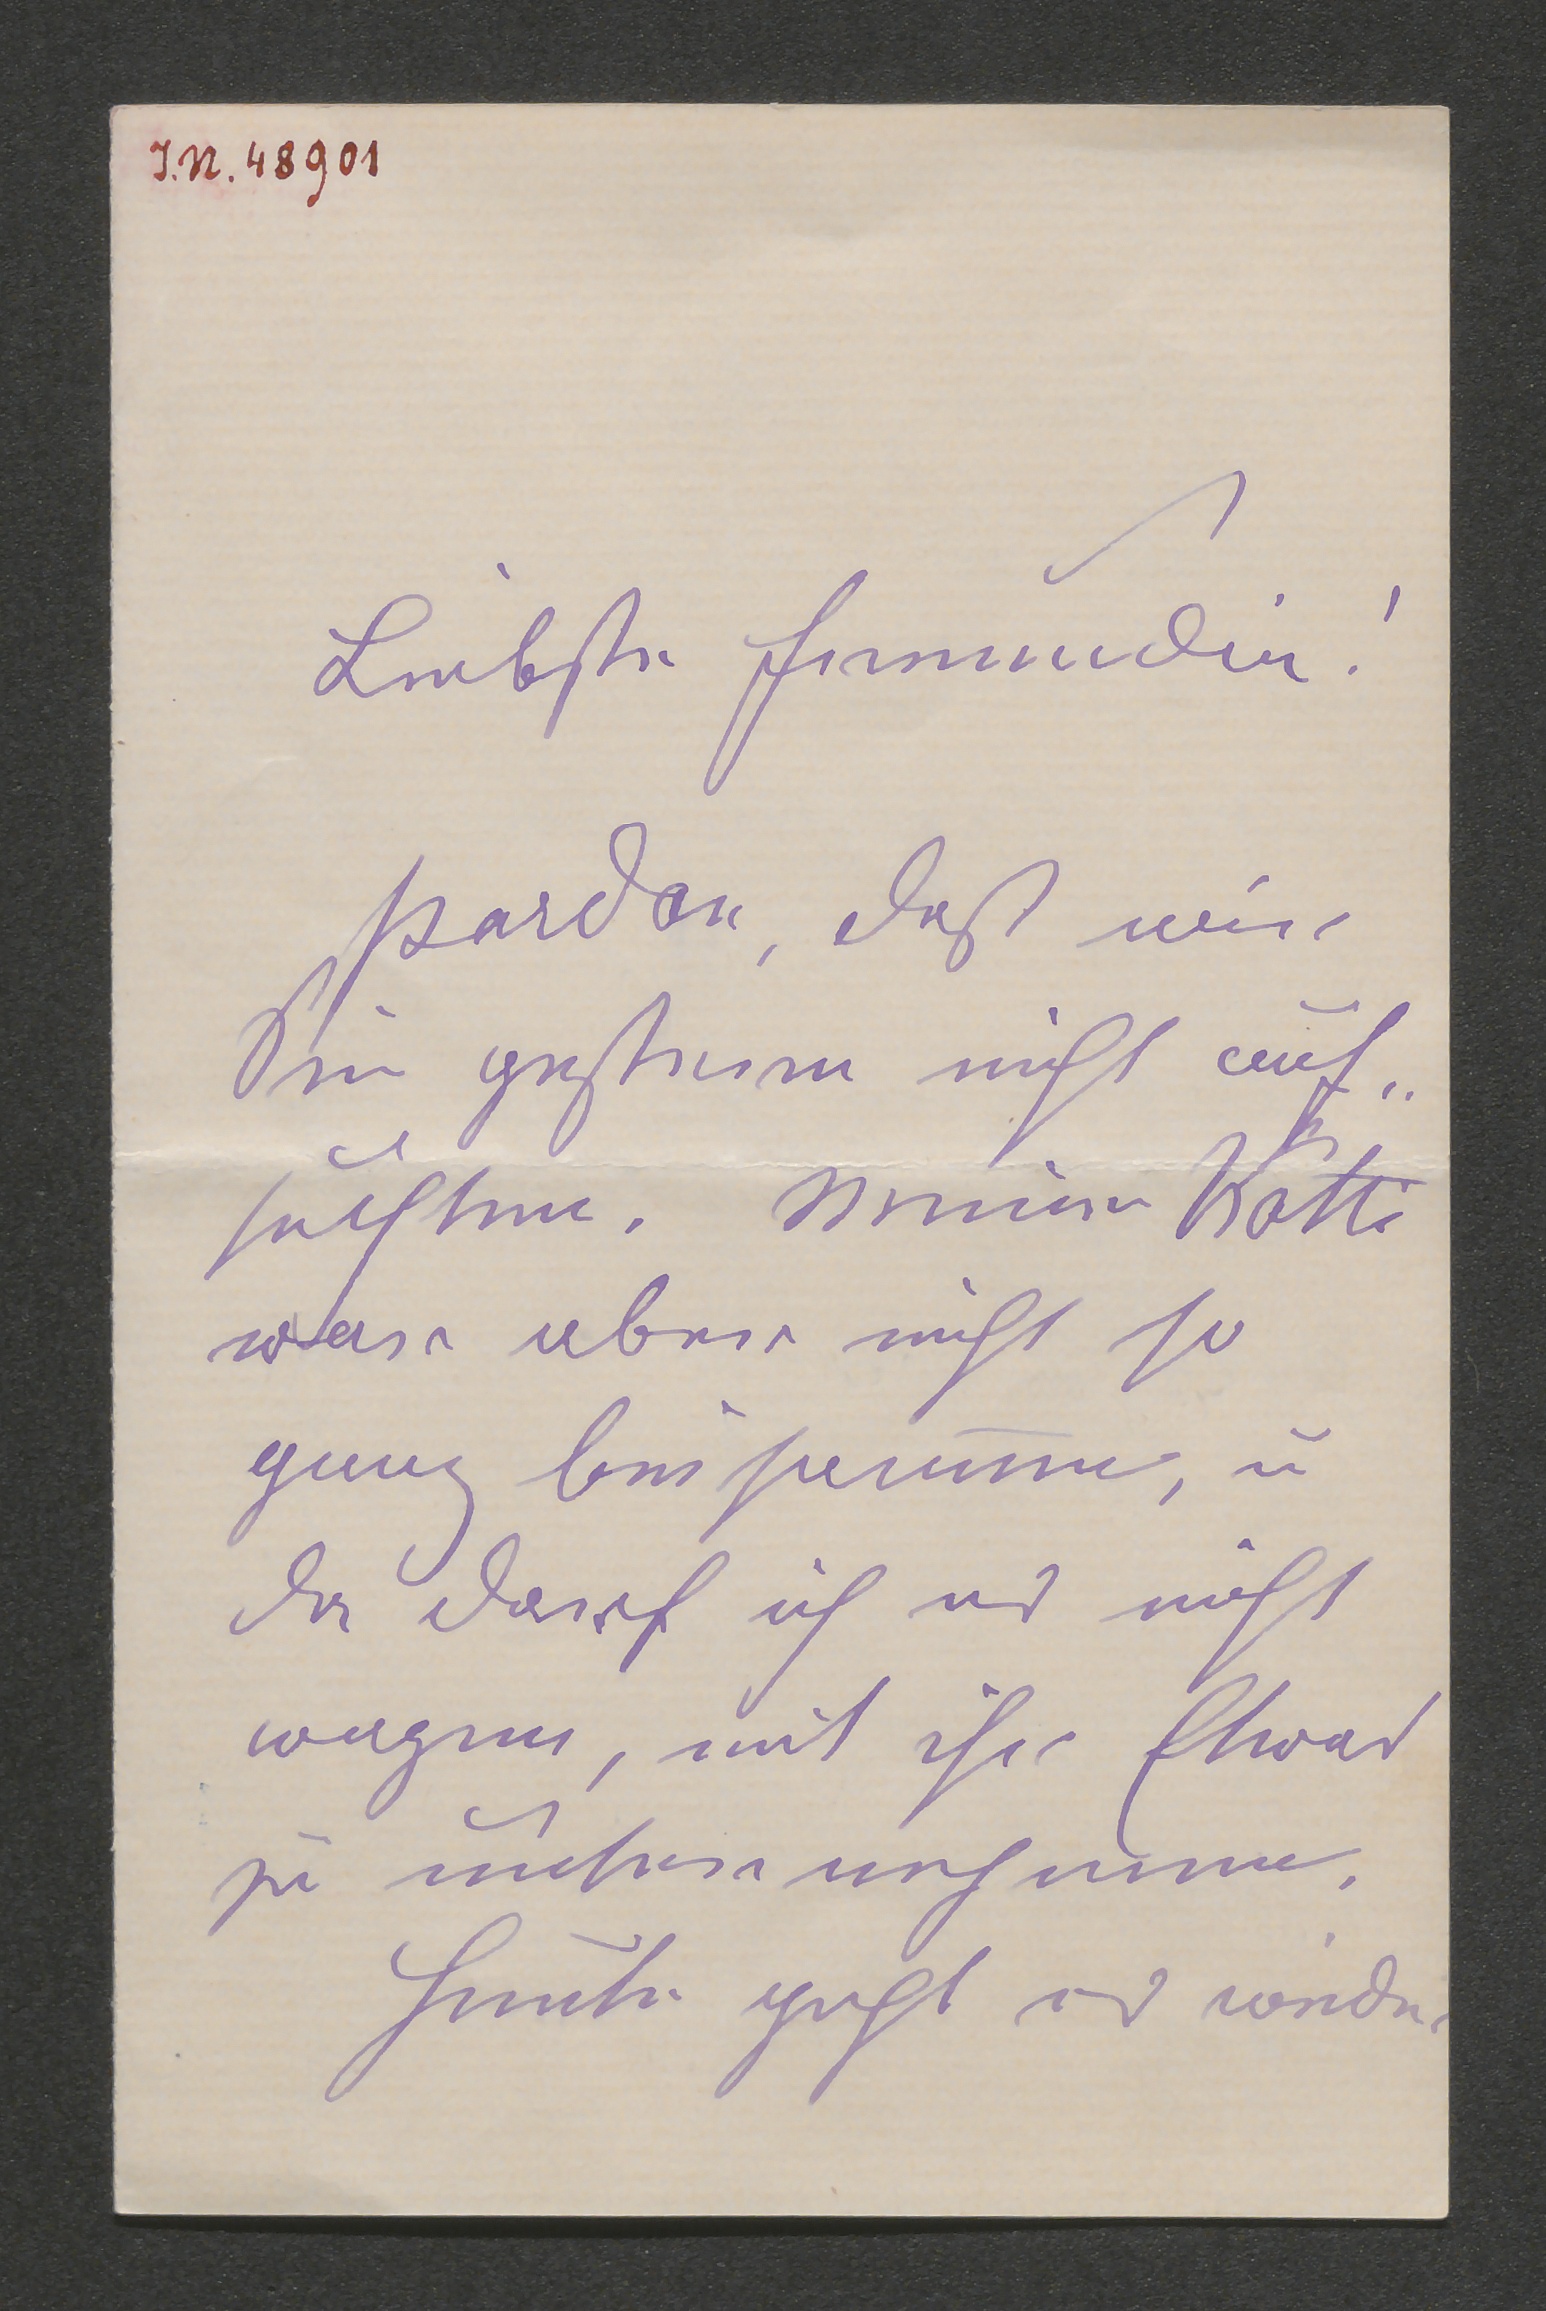 I.N. 48901
Liebste Freundin!
Pardon, daß wir
Sie gestern nicht auf„
suchten. Meine Kathi
war aber nicht so
ganz beisam̅en, u
da darf ich es nicht
wagen, mit ihr Etwas
zu unternehmen.
Heute geht es wieder